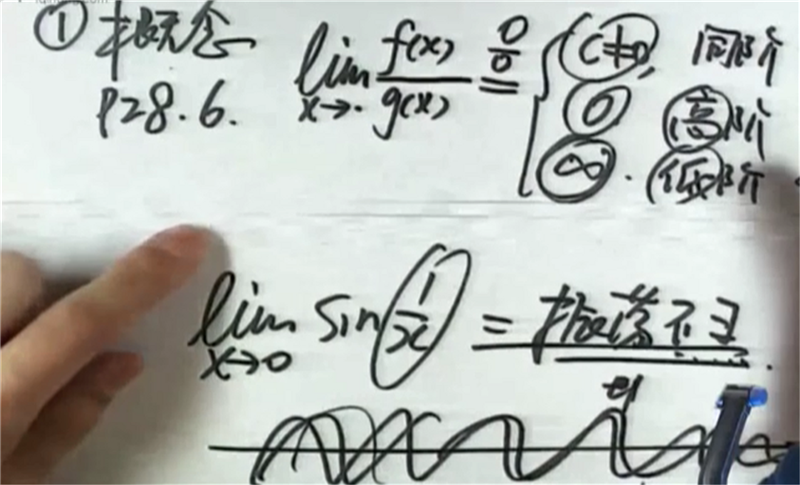 ① 概念
P28.6.
lim x→· f(x)/g(x) 0/0 = { C≠0, 同阶
0 高阶
∞. 低阶
lim x→0 sin 1/x = 振荡不∃.